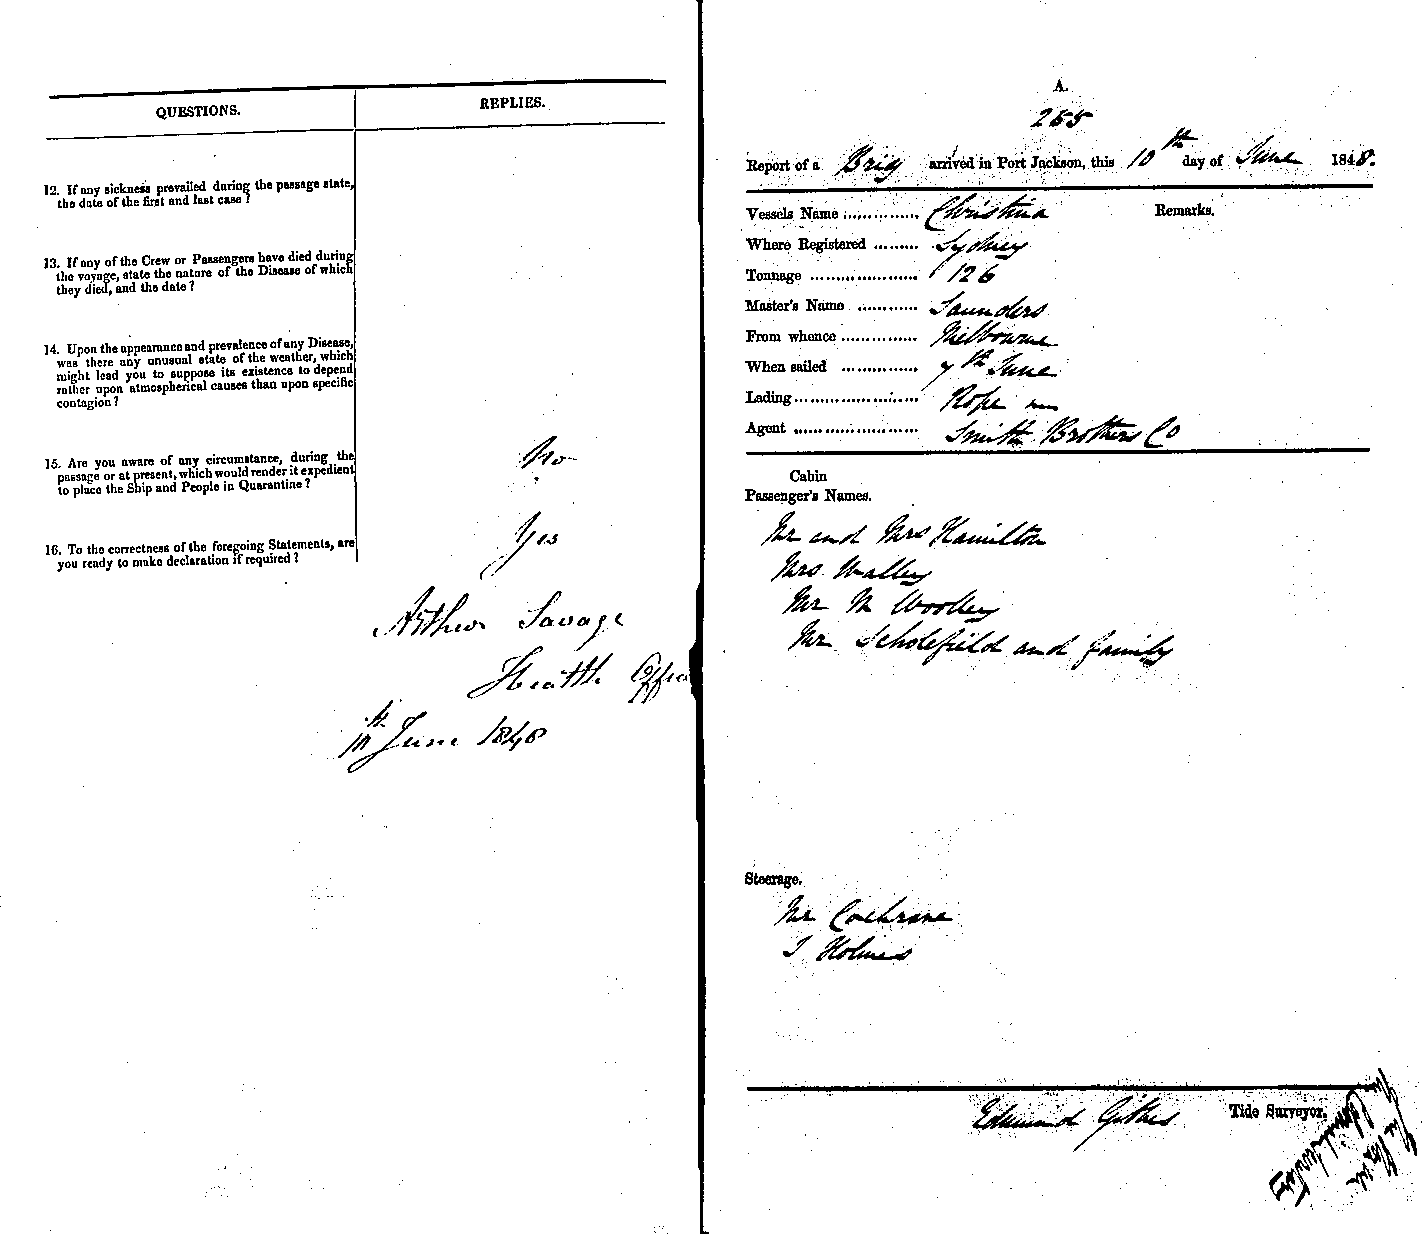 QUESTIONS.
REPLIES.
12. If any sickness prevailed during the passage state,
the date of the first and last case ?
13. If any of the Crew or Passengers have died during
the voyage, state the nature of the Disease of which
they died, and the date ?
14. Upon the appearance and prevalence of any Disease,
was there any unusual state of the weather, which
might lead you to suppose its existence to depend
rather upon atmospherical causes than upon specific
contagion ?
15. Are you aware of any circumstance, during the
passage or at present, which would render it expedient
to place the Ship and People in Quarantine ?
No
16. To the correctness of the foregoing Statements, are
you ready to make declaration if required ?
Yes
Arthur Savage
Health
10th June 1848
A.
255
Report of a Brig arrived in Port Jackson, this 10th day of June 1848.
Vessels Name .............. Christina
Remarks.
Where Registered ......... Sydney
Tonnage ..................... 126
Master's Name ............ Saunders
From whence ............... Melbourne
When sailed ............... 7th June
Lading........................ Rope
Agent ........................ Smith Brothers Co
Cabin
Passenger's Names.
Mr and Mrs Hamilton
Mrs Walley
Mr M Woolley
Mr Scholefield and family
Steerage.
Mr Cochrane
J Holmes
Edmund Gilkes Tide Surveyor.